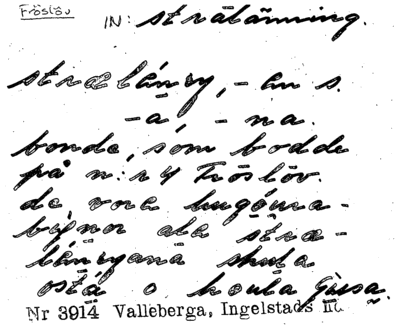 Fröslöv
IN: strälänning.
strælánny, -en s.
-ā, -na.
bonde, som bodde
på n:r 4 Fröslöv.
de vora hugóura-
bỳnor ala stræ-
lánnyana skula
ostá o houla Gùsa.
Nr 3914 Valleberga, Ingelstads hd.